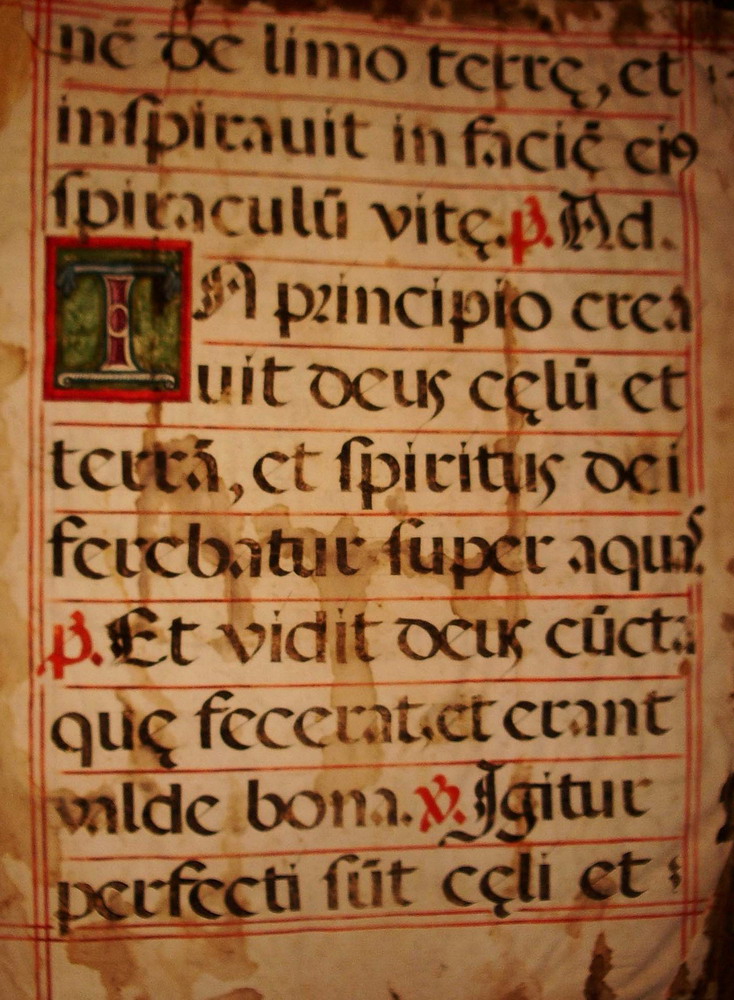 nē de limo terrę, et
inſpirauit in faciē eiꝰ
ſpiraculū vitę. ꝶ. Ad.
IN principio crea
uit deus cęlū et
terrā, et ſpiritus dei
ferebatur ſuper aquas.
ꝶ. Et vidit deus cūcta
quę fecerat, et erant
valde bona. ℣. Igitur
perfecti ſūt cęli et